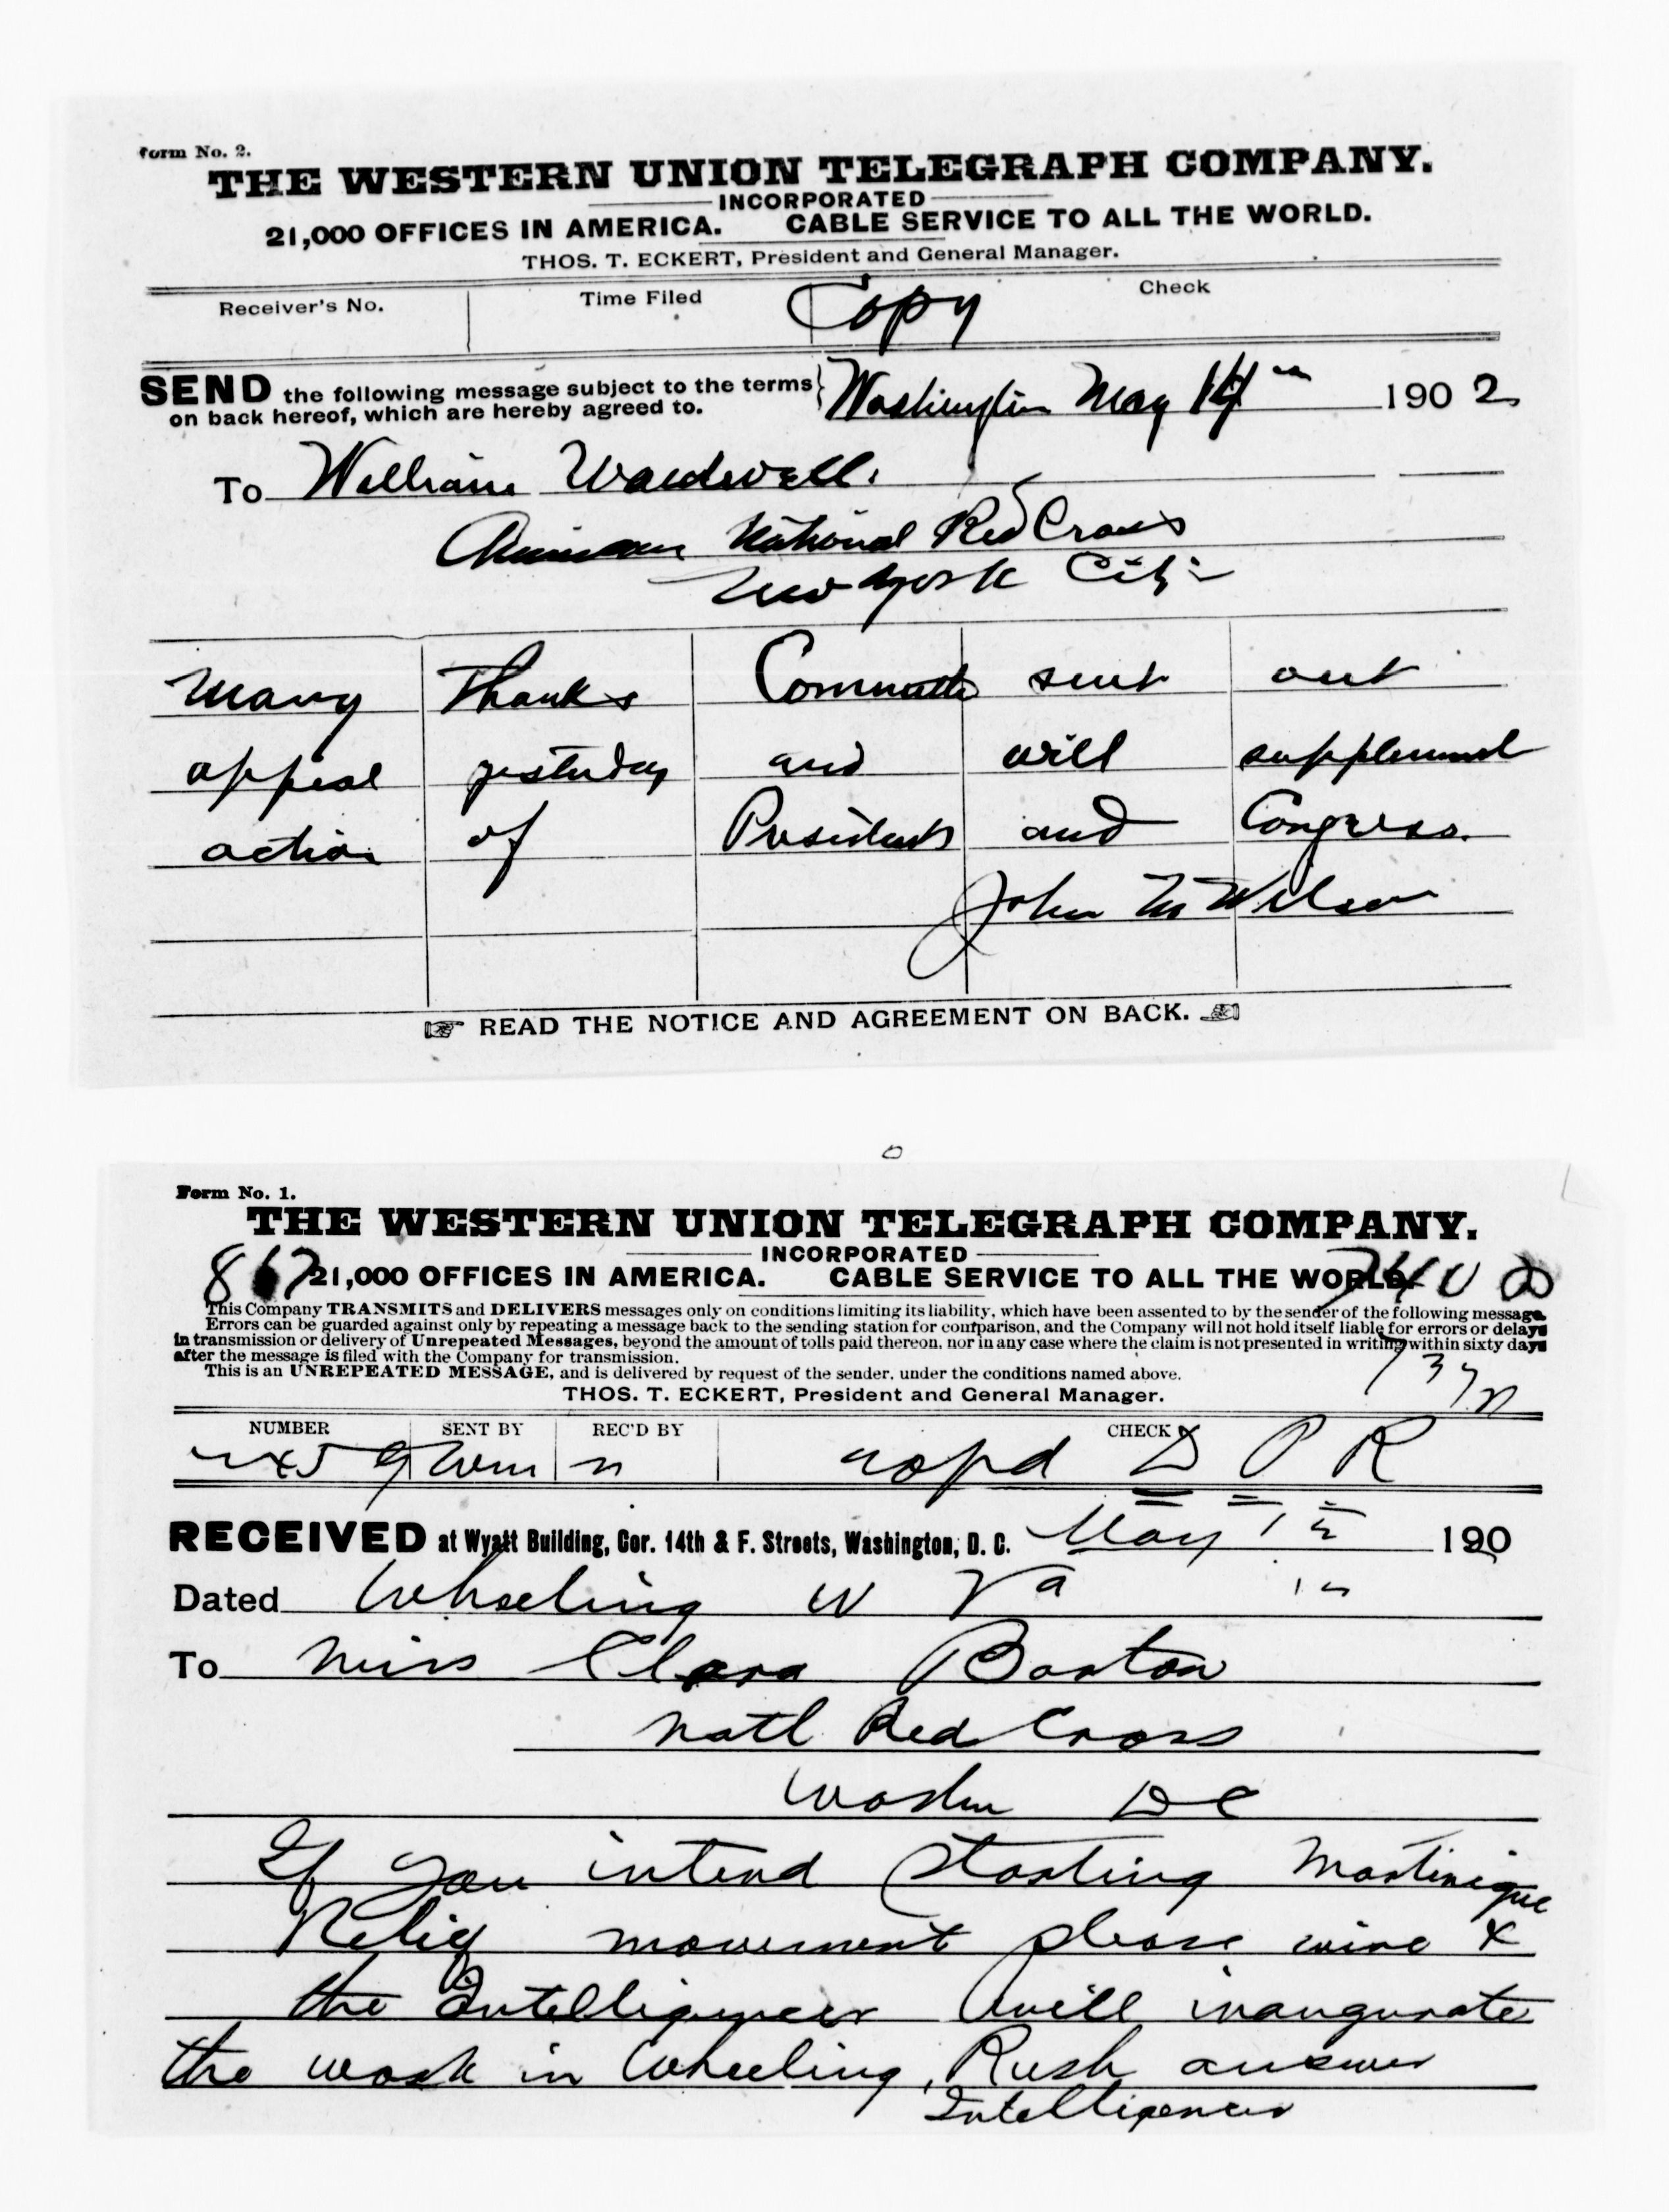 Form No. 2.
THE WESTERN UNION TELEGRAPH COMPANY.
INCORPORATED
21,000 OFFICES IN AMERICA. CABLE SERVICE TO ALL THE WORLD.
THOS. T. ECKERT, President and General Manager.
Receiver's No. Time Filed Copy Check
SEND the following message subject to the terms
on back hereof, which are hereby agreed to. Washington May 14th 1902
To William Wardwell.
American National Red Cross
New York City
Many Thanks Committee sent out
appeal yesterday and will supplement
action of President and Congress.
John M Wilson
READ THE NOTICE AND AGREEMENT ON BACK.
Form No. 1.
THE WESTERN UNION TELEGRAPH COMPANY.
INCORPORATED
867 21,000 OFFICES IN AMERICA. CABLE SERVICE TO ALL THE WORLD.
This Company TRANSMITS and DELIVERS messages only on conditions limiting its liability, which have been assented to by the sender of the following message.
Errors can be guarded against only by repeating a message back to the sending station for comparison, and the Company will not hold itself liable for errors or delays
in transmission or delivery of Unrepeated Messages, beyond the amount of tolls paid thereon, nor in any case where the claim is not presented in writing within sixty days
after the message is filed with the Company for transmission.
This is an UNREPEATED MESSAGE, and is delivered by request of the sender, under the conditions named above.
THOS. T. ECKERT, President and General Manager.
NUMBER SENT BY REC'D BY CHECK
D P R
RECEIVED at Wyatt Building, Cor. 14th & F. Streets, Washington, D. C. May 12 1902
Dated Wheeling W Va 12
To Miss Clara Barton
Natl Red Cross
Washn DC
If you intend starting Martinique
Relief movement please wire &
the Intelligencer will inaugurate
the work in Wheeling, Rush answer
Intelligencer